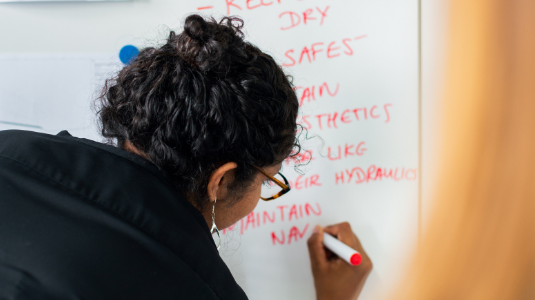 DRY
SAFES-
TAIN
STHETICS
LIKE
EIR HYDRAULIC
MAINTAIN
NAV